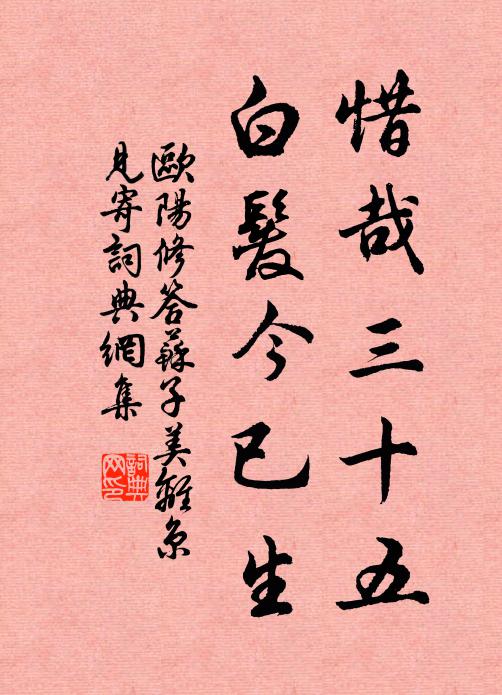 惜哉三十五
白髮今已生
歐陽修答蘇子美離京
見寄詞典網集
詞典
网印